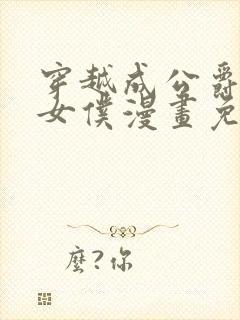 穿越成公爵
女僕漫畫免
麼?你